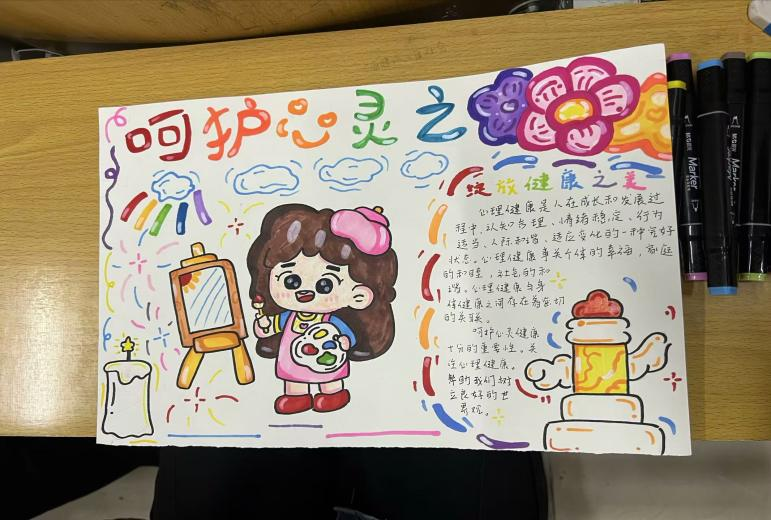 呵护心灵之
绽放健康之美
心理健康是人在成长和发展过
程中，认知合理、情绪稳定、行为
适当、人际和谐、适应变化的一种完好
状态。心理健康事关个体的幸福，家庭
的和睦，社会的和
谐。心理健康与身
体健康之间存在着密切
的关联。
呵护心灵健康
十分的重要性。关
注心理健康。
帮助我们树
立良好的世
界观。
Marker
Marker